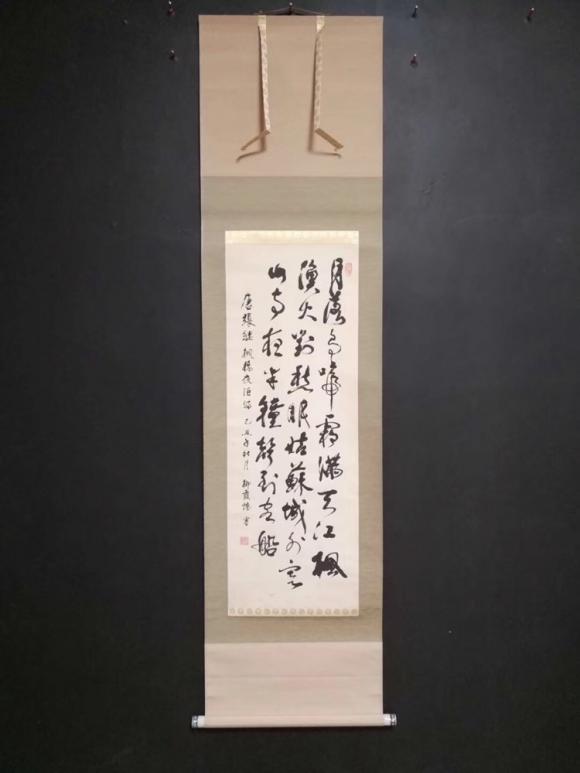 月落烏啼霜滿天江楓
漁火對愁眠姑蘇城外寒
山寺夜半鐘聲到客船
唐張繼楓橋夜泊 乙丑年秋月 柳